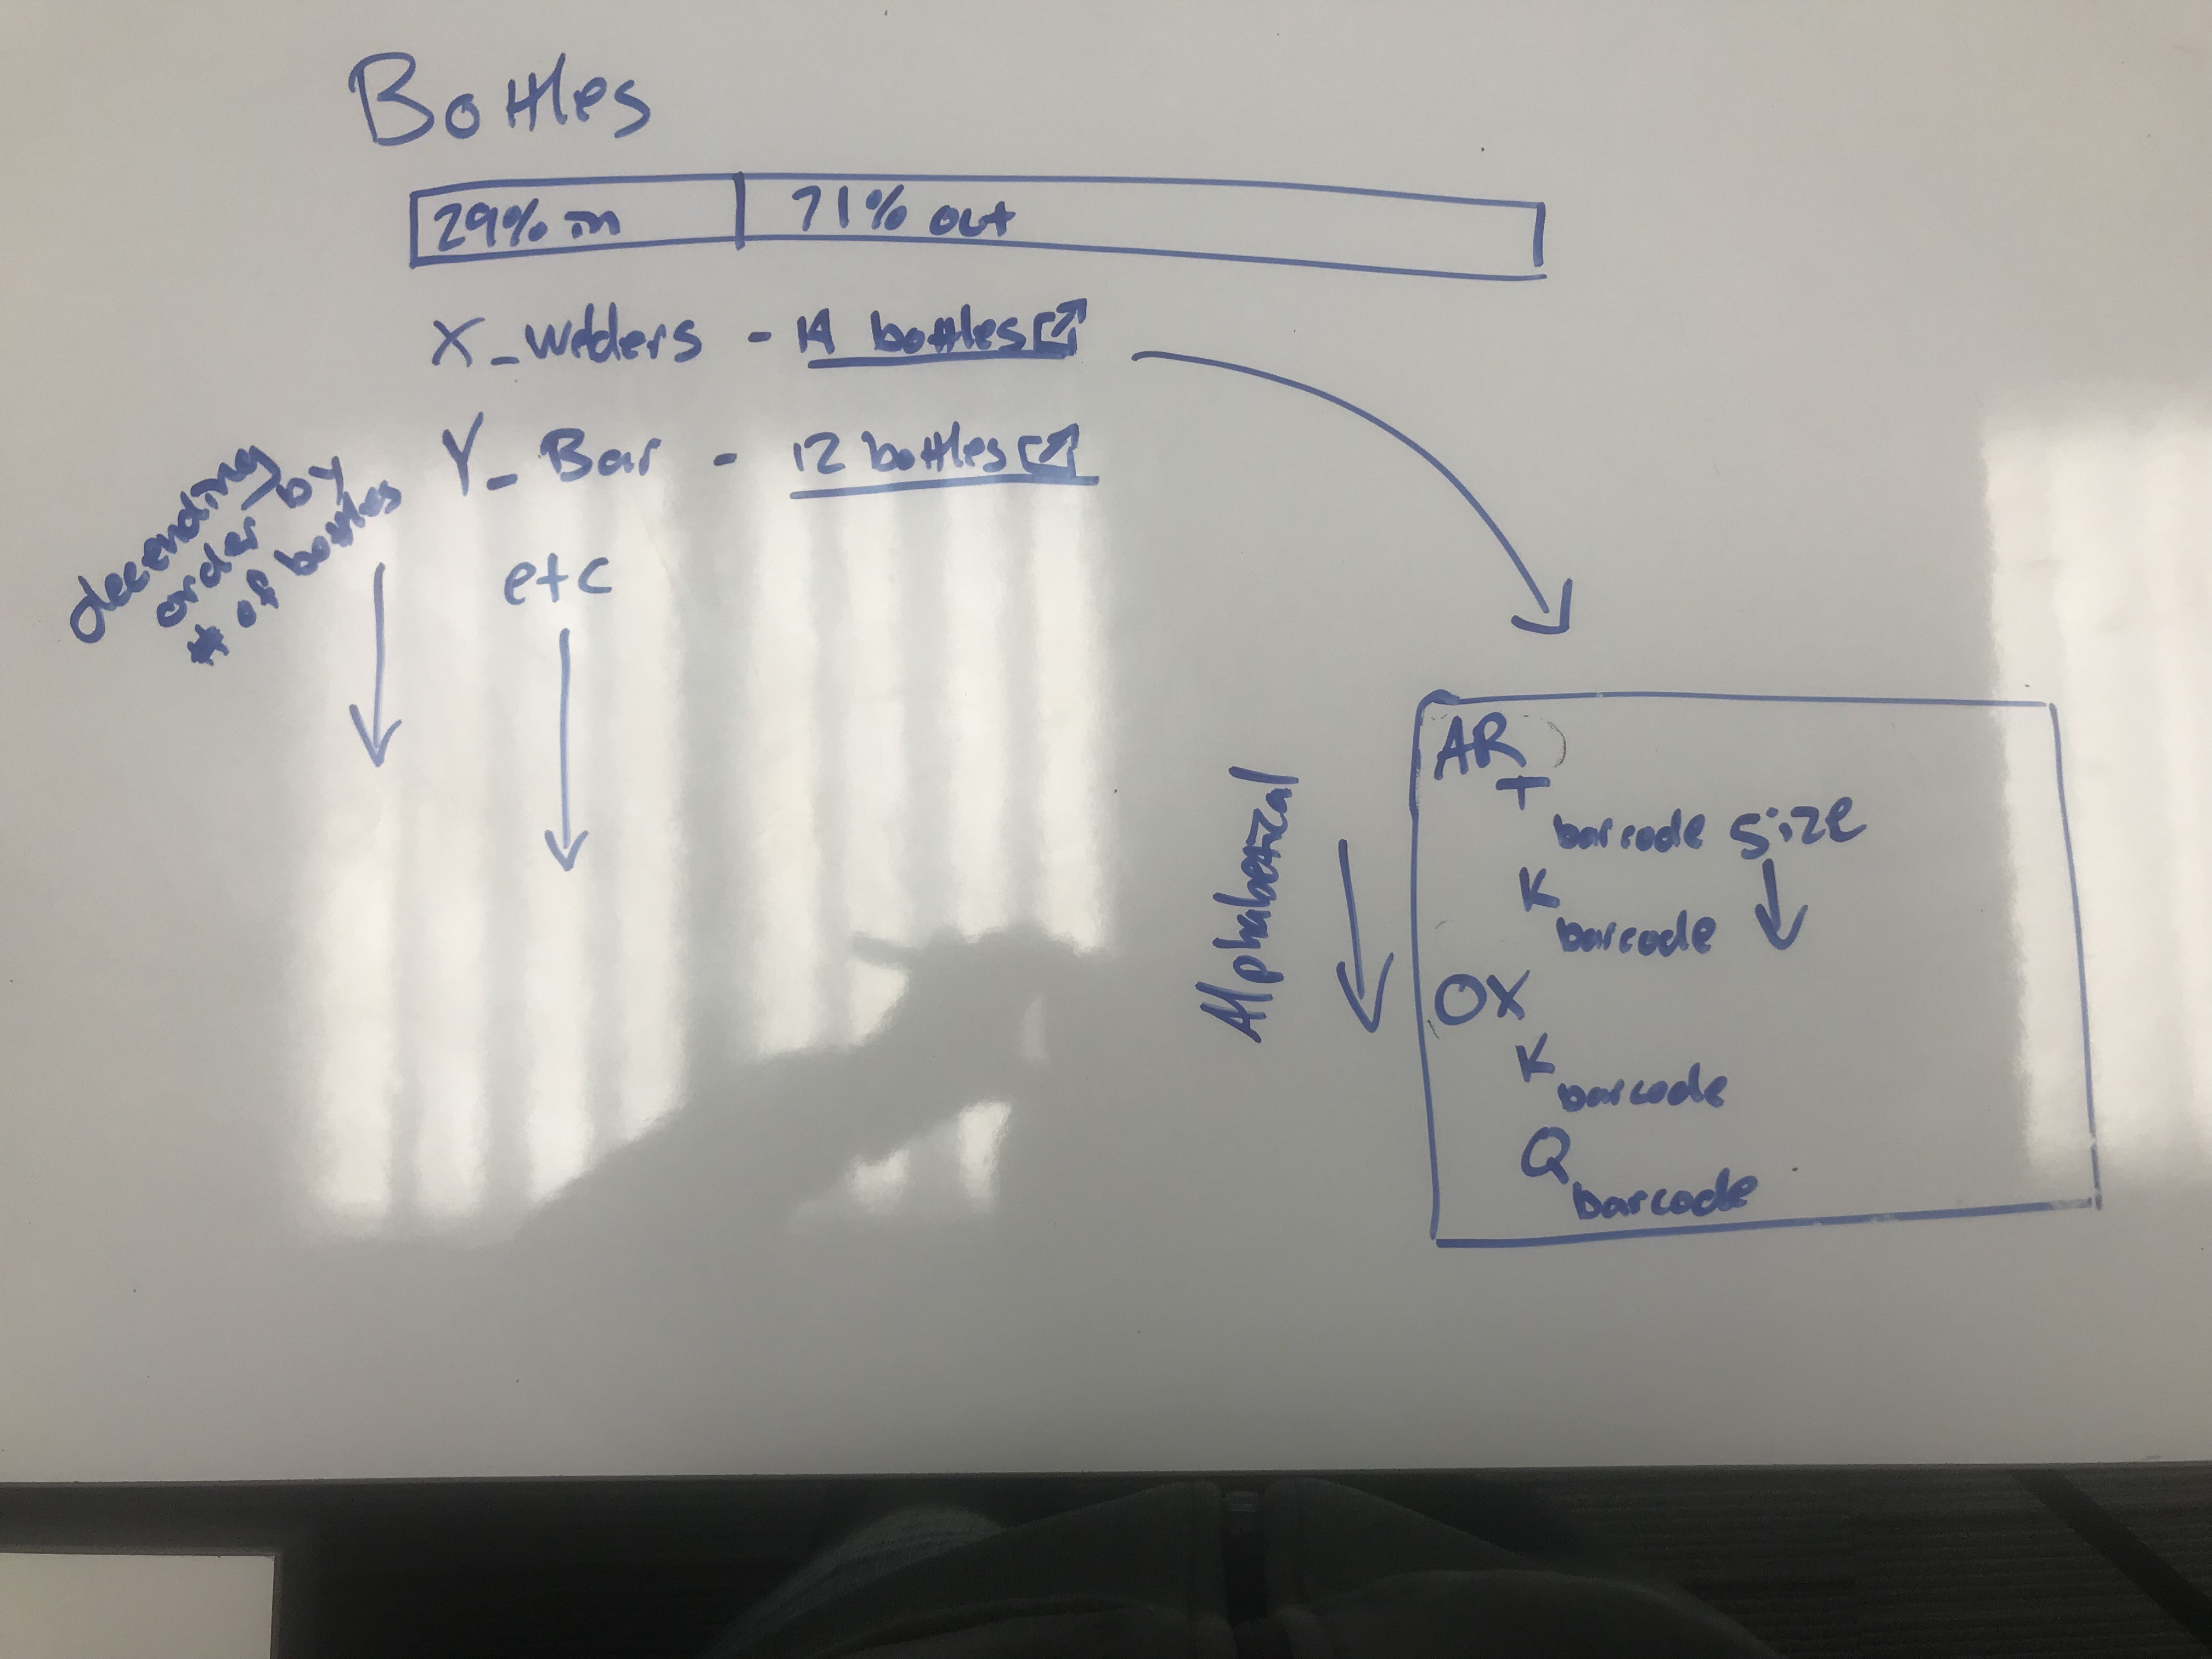 Bottles
29% in 71% out
X_welders - 14 bottles
Y_ Bar - 12 bottles
etc
decending
order by
# of bottles
Alphabetical
AR
T
barcode size
K
barcode
OX
K
barcode
Q
barcode